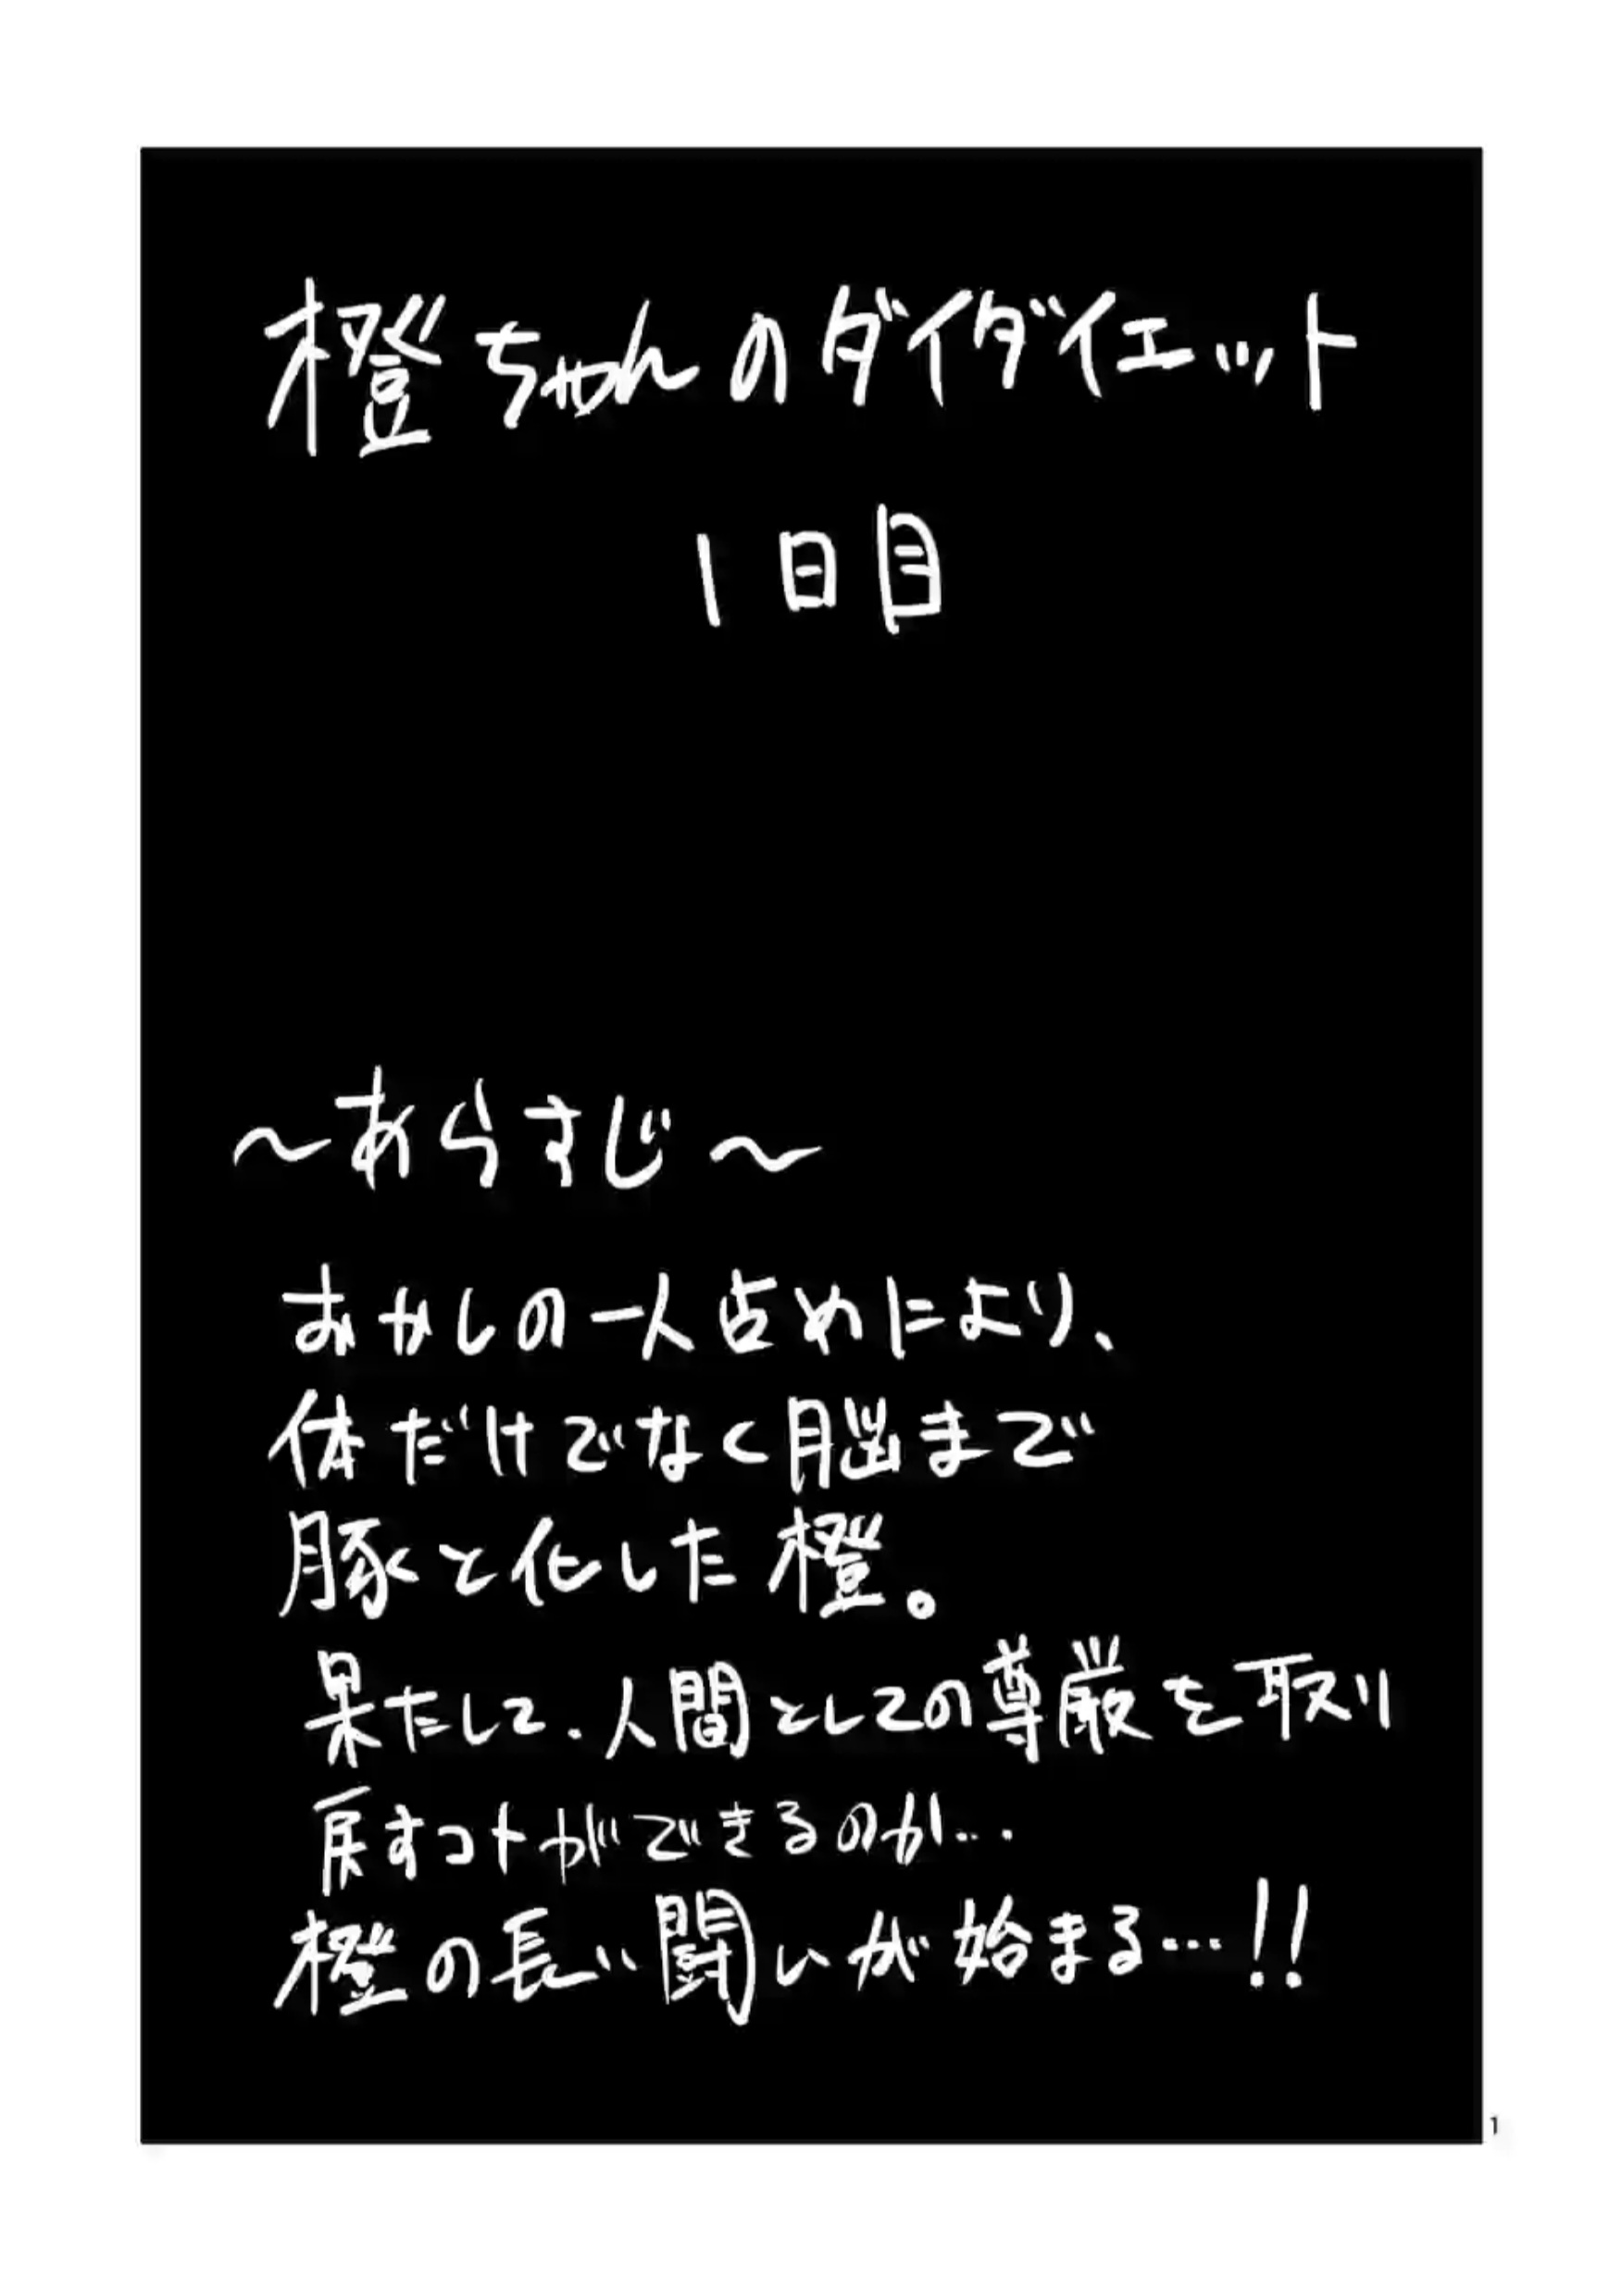 橙ちゃんのダイダイエット
1日目
～あらすじ～
おかしの一人占めにより、
体だけでなく脳まで
豚と化した橙。
果たして、人間としての尊厳を取り
戻すコトができるのか…
橙の長い闘いが始まる…!!
1